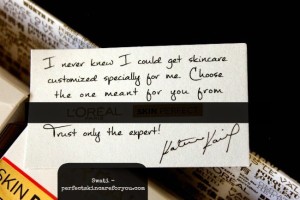 I never knew I could get skincare
customized specially for me. Choose
the one meant for you from
L'OREAL
Trust only the expert!
Katrina Kaif
SKIN
Swati -
perfectskincareforyou.com